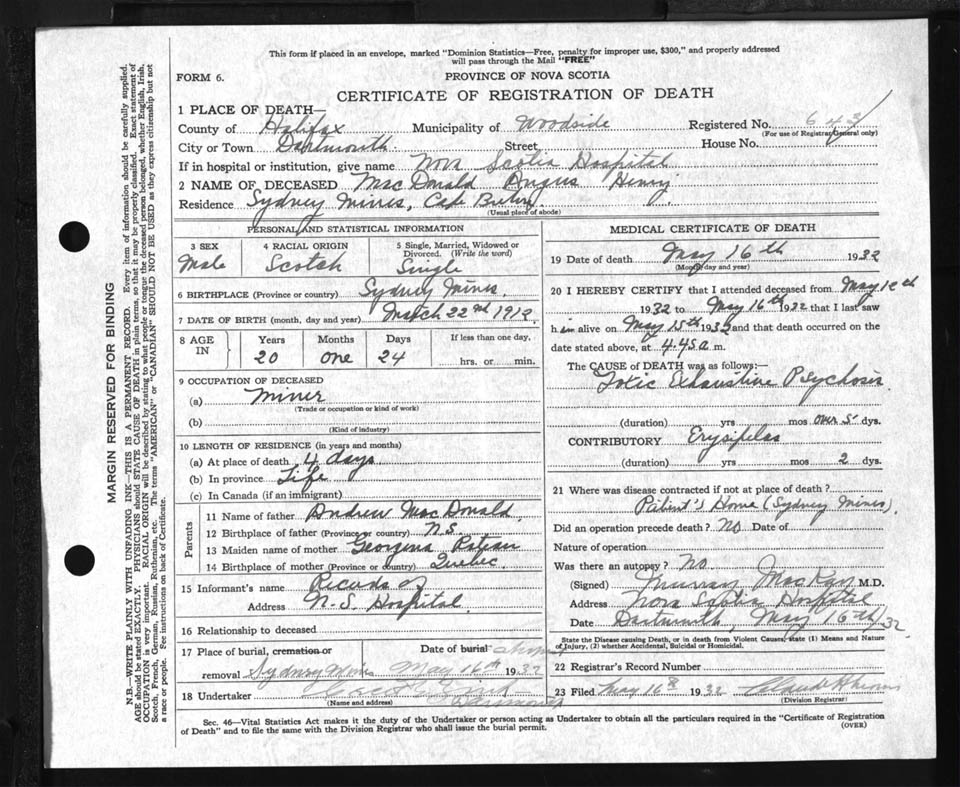 This form if placed in an envelope, marked "Dominion Statistics—Free, penalty for improper use, $300," and properly addressed
will pass through the Mail "FREE"
FORM 6.
PROVINCE OF NOVA SCOTIA
CERTIFICATE OF REGISTRATION OF DEATH
1 PLACE OF DEATH—
County of Halifax Municipality of Woodside Registered No.
(For use of Registrar General only)
City or Town Dartmouth Street, House No.
If in hospital or institution, give name Nova Scotia Hospital
2 NAME OF DECEASED MacDonald Angus Henry
Residence Sydney Mines, Cape Breton
(Usual place of abode)
PERSONAL AND STATISTICAL INFORMATION
3 SEX 4 RACIAL ORIGIN 5 Single, Married, Widowed or Divorced. (Write the word)
Male Scotch Single
6 BIRTHPLACE (Province or country) Sydney Mines,
7 DATE OF BIRTH (month, day and year) March 22nd 1912
8 AGE IN Years Months Days If less than one day,
20 one 24 hrs. or min.
9 OCCUPATION OF DECEASED
(a) Miner
(Trade or occupation or kind of work)
(b)
(Kind of industry)
10 LENGTH OF RESIDENCE (in years and months)
(a) At place of death 4 days
(b) In province Life
(c) In Canada (if an immigrant)
Parents
11 Name of father Andrew MacDonald
12 Birthplace of father (Province or country) N.S.
13 Maiden name of mother Georgena
14 Birthplace of mother (Province or country) Quebec
15 Informant's name Records of
Address N-S. Hospital
16 Relationship to deceased
17 Place of burial, cremation or Date of burial
removal Sydney Mines May 16th 1932
18 Undertaker
(Name and address) Dartmouth
MEDICAL CERTIFICATE OF DEATH
19 Date of death May 16th 1932
(Month, day and year)
20 I HEREBY CERTIFY that I attended deceased from May 12th
1932 to May 16th 1932 that I last saw
him alive on May 15th 1932 and that death occurred on
date stated above, at 4.45 a m.
The CAUSE of DEATH was as follows:—
Toxic Exhaustive Psychosis
(duration) yrs mos 5 dys.
CONTRIBUTORY Erysipelas
(duration) yrs mos 2 dys.
21 Where was disease contracted if not at place of death?
Patient's Home (Sydney Mines)
Did an operation precede death? No Date of
Nature of operation
Was there an autopsy? No
(Signed) Murray MacKay M.D.
Address Nova Scotia Hospital
Date Dartmouth, May 16th/32
State the Disease causing Death, or in death from Violent Causes, state (1) Means and Nature
of Injury, (2) whether Accidental, Suicidal or Homicidal.
22 Registrar's Record Number
23 Filed May 16th 1932
(Division Registrar)
Sec. 46—Vital Statistics Act makes it the duty of the Undertaker or person acting as Undertaker to obtain all the particulars required in the "Certificate of Registration
of Death" and to file the same with the Division Registrar who shall issue the burial permit.
(OVER)
MARGIN RESERVED FOR BINDING
N.B.—WRITE PLAINLY WITH UNFADING INK—THIS IS A PERMANENT RECORD. Every item of information should be carefully supplied.
AGE should be stated EXACTLY. PHYSICIANS should STATE CAUSE OF DEATH in plain terms, so that it may be properly classified. Exact statement of
OCCUPATION is very important. RACIAL ORIGIN will be described by stating to what people or tongue the deceased person belonged, whether English, Irish,
Scotch, French, German, Russian, Ruthenian, etc. The terms "AMERICAN" or "CANADIAN" SHOULD NOT BE USED as they express citizenship but not
a race or people. See instructions on back of Certificate.